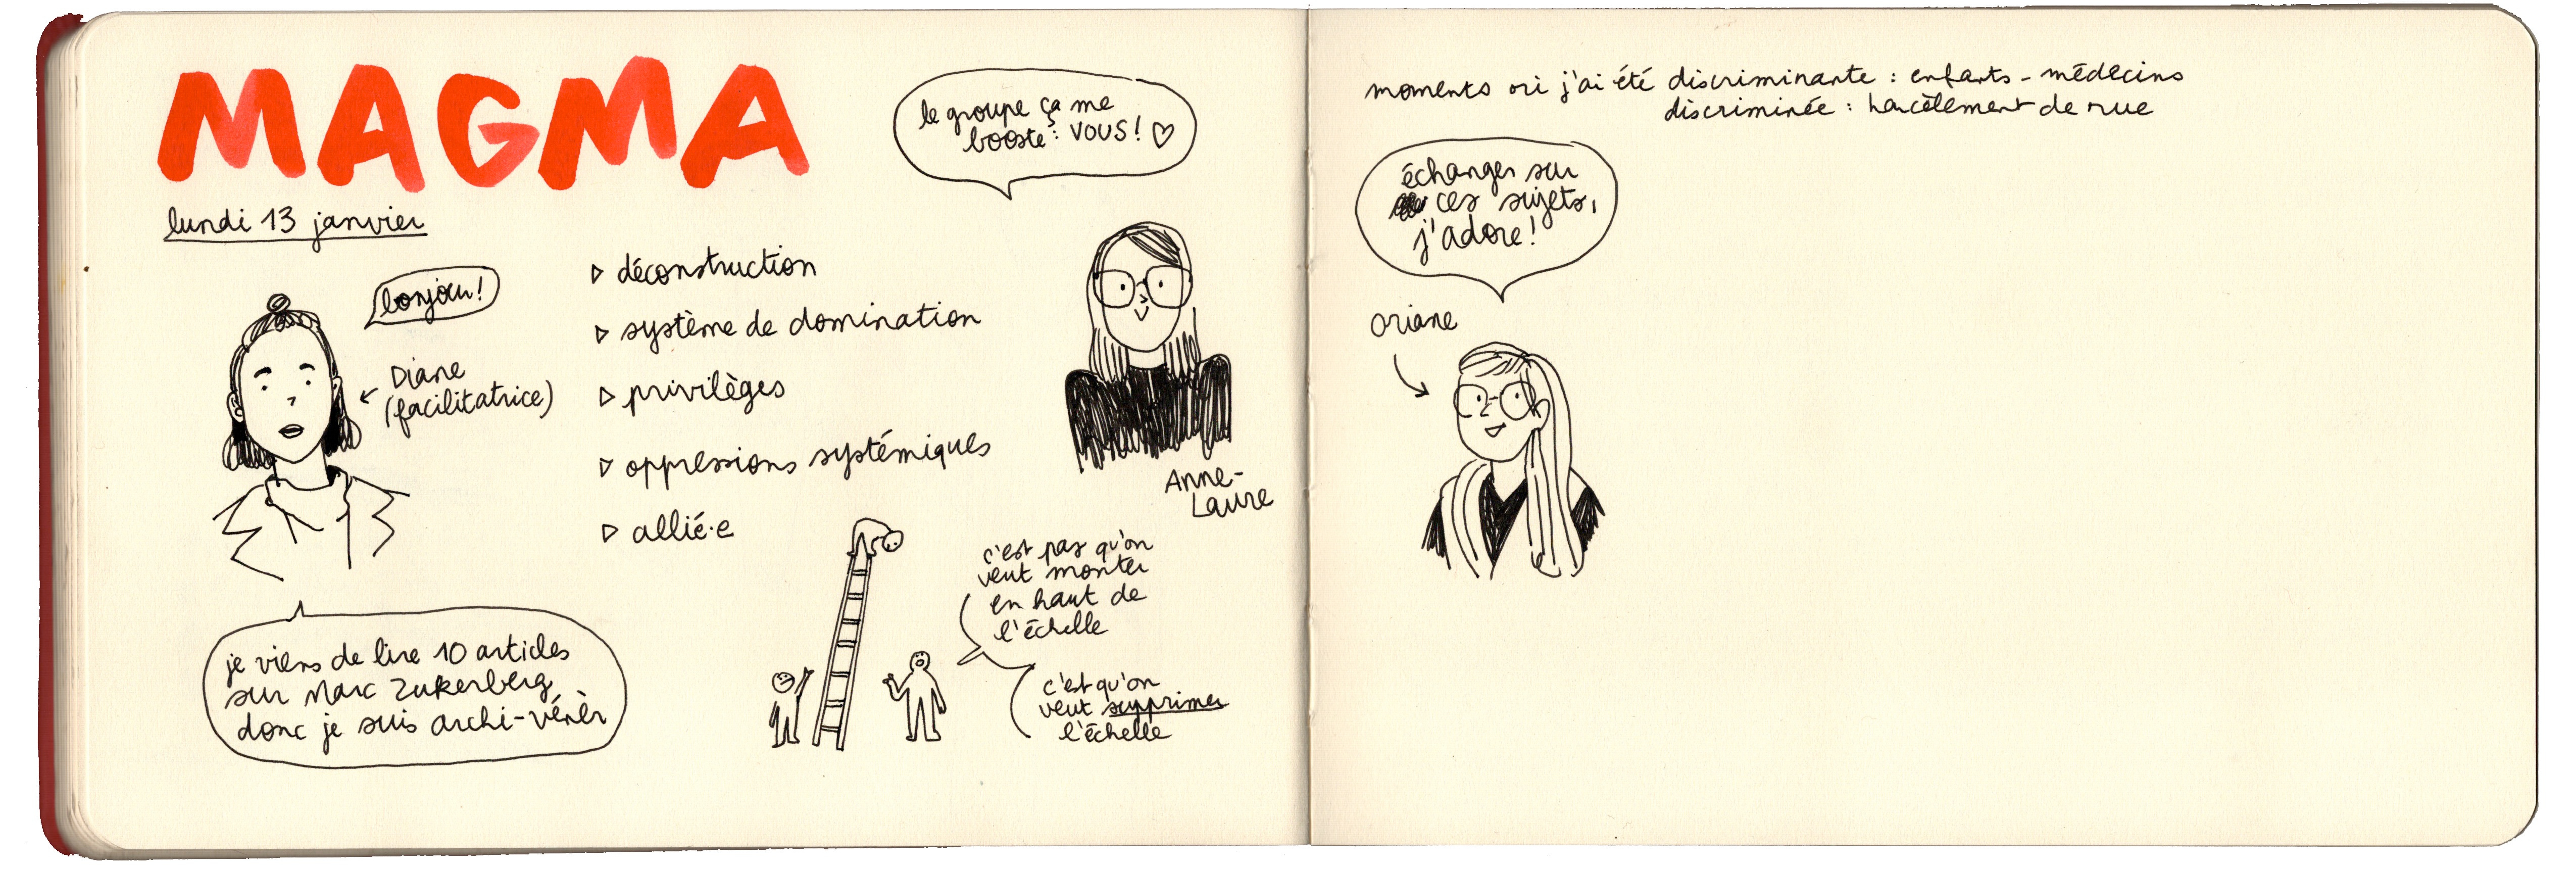 MAGMA
lundi 13 janvier
bonjour!
Diane
(facilitatrice)
je viens de lire 10 articles
sur Marc Zukerberg
donc je suis archi-vénèr
▷ déconstruction
▷ système de domination
▷ privilèges
▷ oppressions systémiques
▷ allié·e
le groupe ça me
booste : VOUS ! ♡
Anne-
Laure
c'est pas qu'on
veut monter
en haut de
l'échelle
c'est qu'on
veut supprimer
l'échelle
moments où j'ai été discriminante : enfants - médecins
discriminée : harcèlement de rue
échanger sur
ces sujets,
j'adore !
Oriane